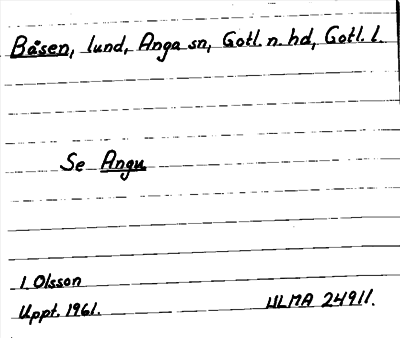 Båsen, lund, Anga sn, Gotl. n. hd, Gotl. l.
Se Angu
I. Olsson
Uppt. 1961.
ULMA 24911.